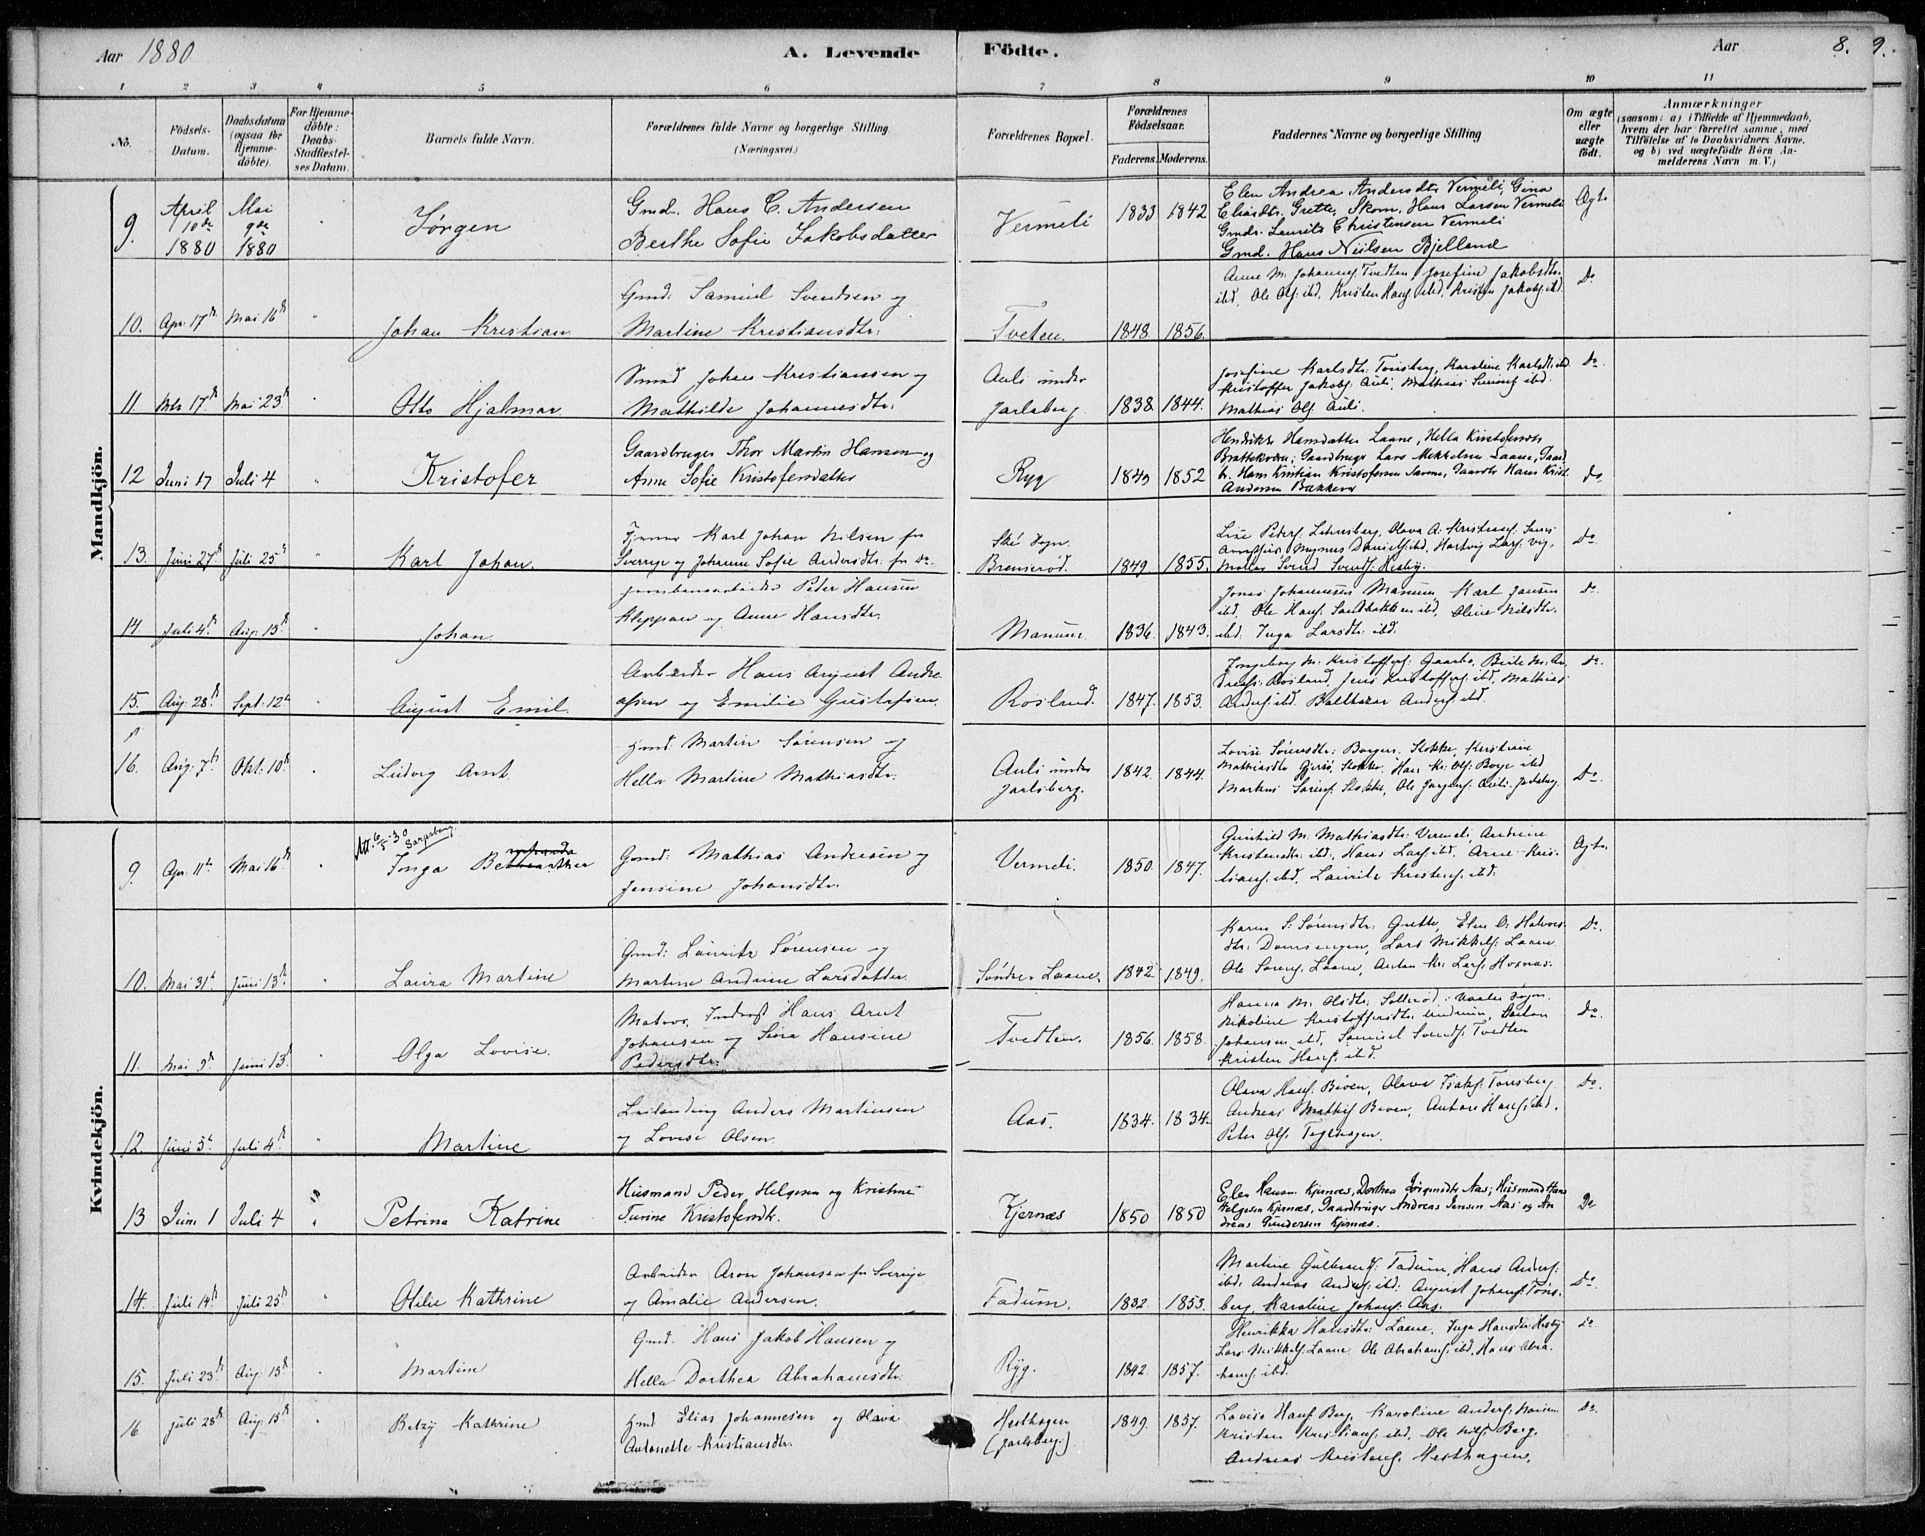 Aar 1880 A. Levende Födte. Aar 8. 9.
1 2 3 4 5 6 7 8 9 10 11
No. Födsels-Datum. Daabsdatum (ogsaa for Hjemme-döbte). For Hjemme-döbte: Daabs-Stadfæstel-ses Datum. Barnets fulde Navn. Forældrenes fulde Navne og borgerlige Stilling (Næringsvei.) Forældrenes Bopæl. Forældrenes Födselsaar. Faderens. Moderens. Faddernes Navne og borgerlige Stilling Om ægte eller uægte födt. Anmærkninger (saasom: a) i Tilfælde af Hjemmedaab, hvem der har forrettet samme, med Tilföielse af to Daabsvidners Navne, og b) ved uægtefödte Börn Anmelderens Navn m. V.)
Mandkjön.
9. April 10de 1880 Mai 9de 1880 Jörgen Gmd. Hans C. Andersen Berthe Sofie Jakobsdatter Vermeli 1833 1842 Elen Andrea Andersdtr Vermeli, Gina
Grette, Skom. Hans Larsen Vermeli
Gmdr. Laurits Christensen Vermeli
Gmd. Hans Nielsen Bjelland Ægte
10. Apr. 17de Mai 16de Johan Kristian Gmd: Samuel Svendsen og Martine Kristiansdtr. Tveten. 1848 1856. Anne M. Johannes. Tvedten, Josefine Jakobsdtr.
ibd, Ole Ols. ibd, Kristen Hans. ibd, Kristen Jakobs. ibd. Do
11 Mai 23de Otto Hjalmar Smed Johan Kristiansen og Mathilde Johannesdtr. Auli under Jarlsberg. 1838 1844. Josefine Karlsdtr. Tönsberg, Karoline Karlsdtr. ibd
Kristoffer Jakobs. Auli, Mathias ibd.
Mathias Ols. Auli. Do
12 Juni 17 Juli 4 Kristofer Gaardbruger Thor Martin Hansen og Anne Sofie Kristofersdatter Ryg 1849 1852 Hansdatter Laane, Hella Kristofersdtr
Gaardbruger Lars Mikkelsen Laane, Gaard
br. Hans Kristian Kristofersen Gaardbr Hans Krist.
Andersen Bakken Do
13. Juni 27de Juli 25de Karl Johan. Karl Johan Nilsen fra Sverrige og Johanne Sofie Andersdtr. fr Do. Sogn. Bremseröd. 1849. 1855. Lise Peders. Olava A. Kristians.
Magnus Daniels. ibd, Hartvig Lars.
Svend Svends. Do
14 Juli 4de Aug. 15de Johan. Peter Hansen Kleppan og Anne Hansdtr. Manum. 1836. 1843. Jonas Johannesen Manum, Karl Jansen
ibd, Ole Hans. Sandbakken ibd, Oline Nilsdtr.
ibd. Inga Larsdtr. ibd. Do
15. Aug: 28de Sept: 12te August Emil. Arbeider Hans August Andreassen og Emilie Gustafsen. Rosland. 1847. 1853. Ingeborg M. Kristoffers. Gaarbo,
Rosland, Jens Kristoffers. ibd, Mathias
Anders. ibd. Balthazar Anders. ibd. Do.
16. Aug: 7de Okt: 10de Ludvig Arnt. Gmd. Martin Sörensen og Hella Martine Mathiasdtr. Auli under Jarlsberg. 1842. 1844. Lovise Sörensdtr. Borgen Stokke, Kirstine
Mathiasdtr. Stokke, Hans Kr. Ols. Borge ibd
Markus Sörens. Stokke, Ole Jörgens. Auli Jarlsberg. Do
Kvindekjön.
9. Apr. 11te Mai 16de Att. 6/5-30 Sarpsborg. Inga Gmd: Mathias Andresen og Jensine Johansdtr. Vermeli. 1850. 1847. Gunhild M. Mathiasdtr. Vermeli, Andrine
Kristensdtr. ibd, Hans Lars. ibd. Arne Kris-
tians. ibd. Laurits Kristens. ibd. Ægte.
10. Mai 31te Juni 13de Laura Martine Gmd: Lauritz Sörensen og Martine Andrine Larsdatter Söndre Laane. 1842 1849. Karen S. Sörensdtr. Grette, Elen O. Halvors
dtr. Lars Mikkels. Laane
Ole Sörens. Laane, Anton Kr. Lars. Hoxnæs. Do.
11. Mai 9de Juni 13de Olga Lovise. Matros, Indrest Hans Arnt Johansen og Sina Hansine Pedersdtr. Tvedten. 1856. 1858. Hanna M. Olsdtr. Solleröd Sogn.
Nikoline Kristoffersdtr. Anton
Johansen ibd, Samuel Svends. Tvedten
Kristen Hans. ibd. Do
12. Juni 5te Juli 4de Martine Leilending Anders Martinsen og Lovise Olsen. Aas. 1834. 1834. Olava Hans. Olava Isaks. Tönsberg
Andreas Mathis. Anton Hans. ibd.
Peter Ols. Teglhagen. Do.
13 Juni 1 Juli 4 Petrina Katrine Husmand Peder Helgesen og Kristine Turine Kristofersdtr. Kjernæs 1850 1850 Elen Hansen Kjernæs, Dorthea Jörgensdtr Aas, Husmand Hans
Helgesen Kjernæs, Gaardbruger Andreas Jensen Aas og An
dreas Gundersen Kjernæs. Do
14. Juli 14de Juli 25de Otilie Kathrine Arbeider Aron Johansen fr Sverige og Amalie Andersen. Fadum. 1832. 1853. Martine Gulbrands. Fadum, Hans Anders.
ibd. Andreas Anders. ibd. August Johans. Töns-
berg, Karoline Johans. Aas. Do
15. Juli 23de Aug. 15de Martine Gmd. Hans Jakob Hansen og Hella Dorthea Abrahamsdtr. Ryg. 1842. 1857. Henrikka Hansdtr. Laane, Inga Hansdtr. Hesby
Lars Mikkels. Laane Ole Abrahams. ibd, Hans Abra-
hams. ibd. Do
16 Juli 28de Aug. 15de Betzy Kathrine Gmd Elias Johannesen og Olava Antonette Kristiansdtr. Hesthagen (Jarlsberg.) 1849. 1857. Lovise Hans. Berg, Karoline Anders.
Kristen Kristians. ibd. Ole Nils. Berg.
Andreas Kristens. Hesthagen. Do